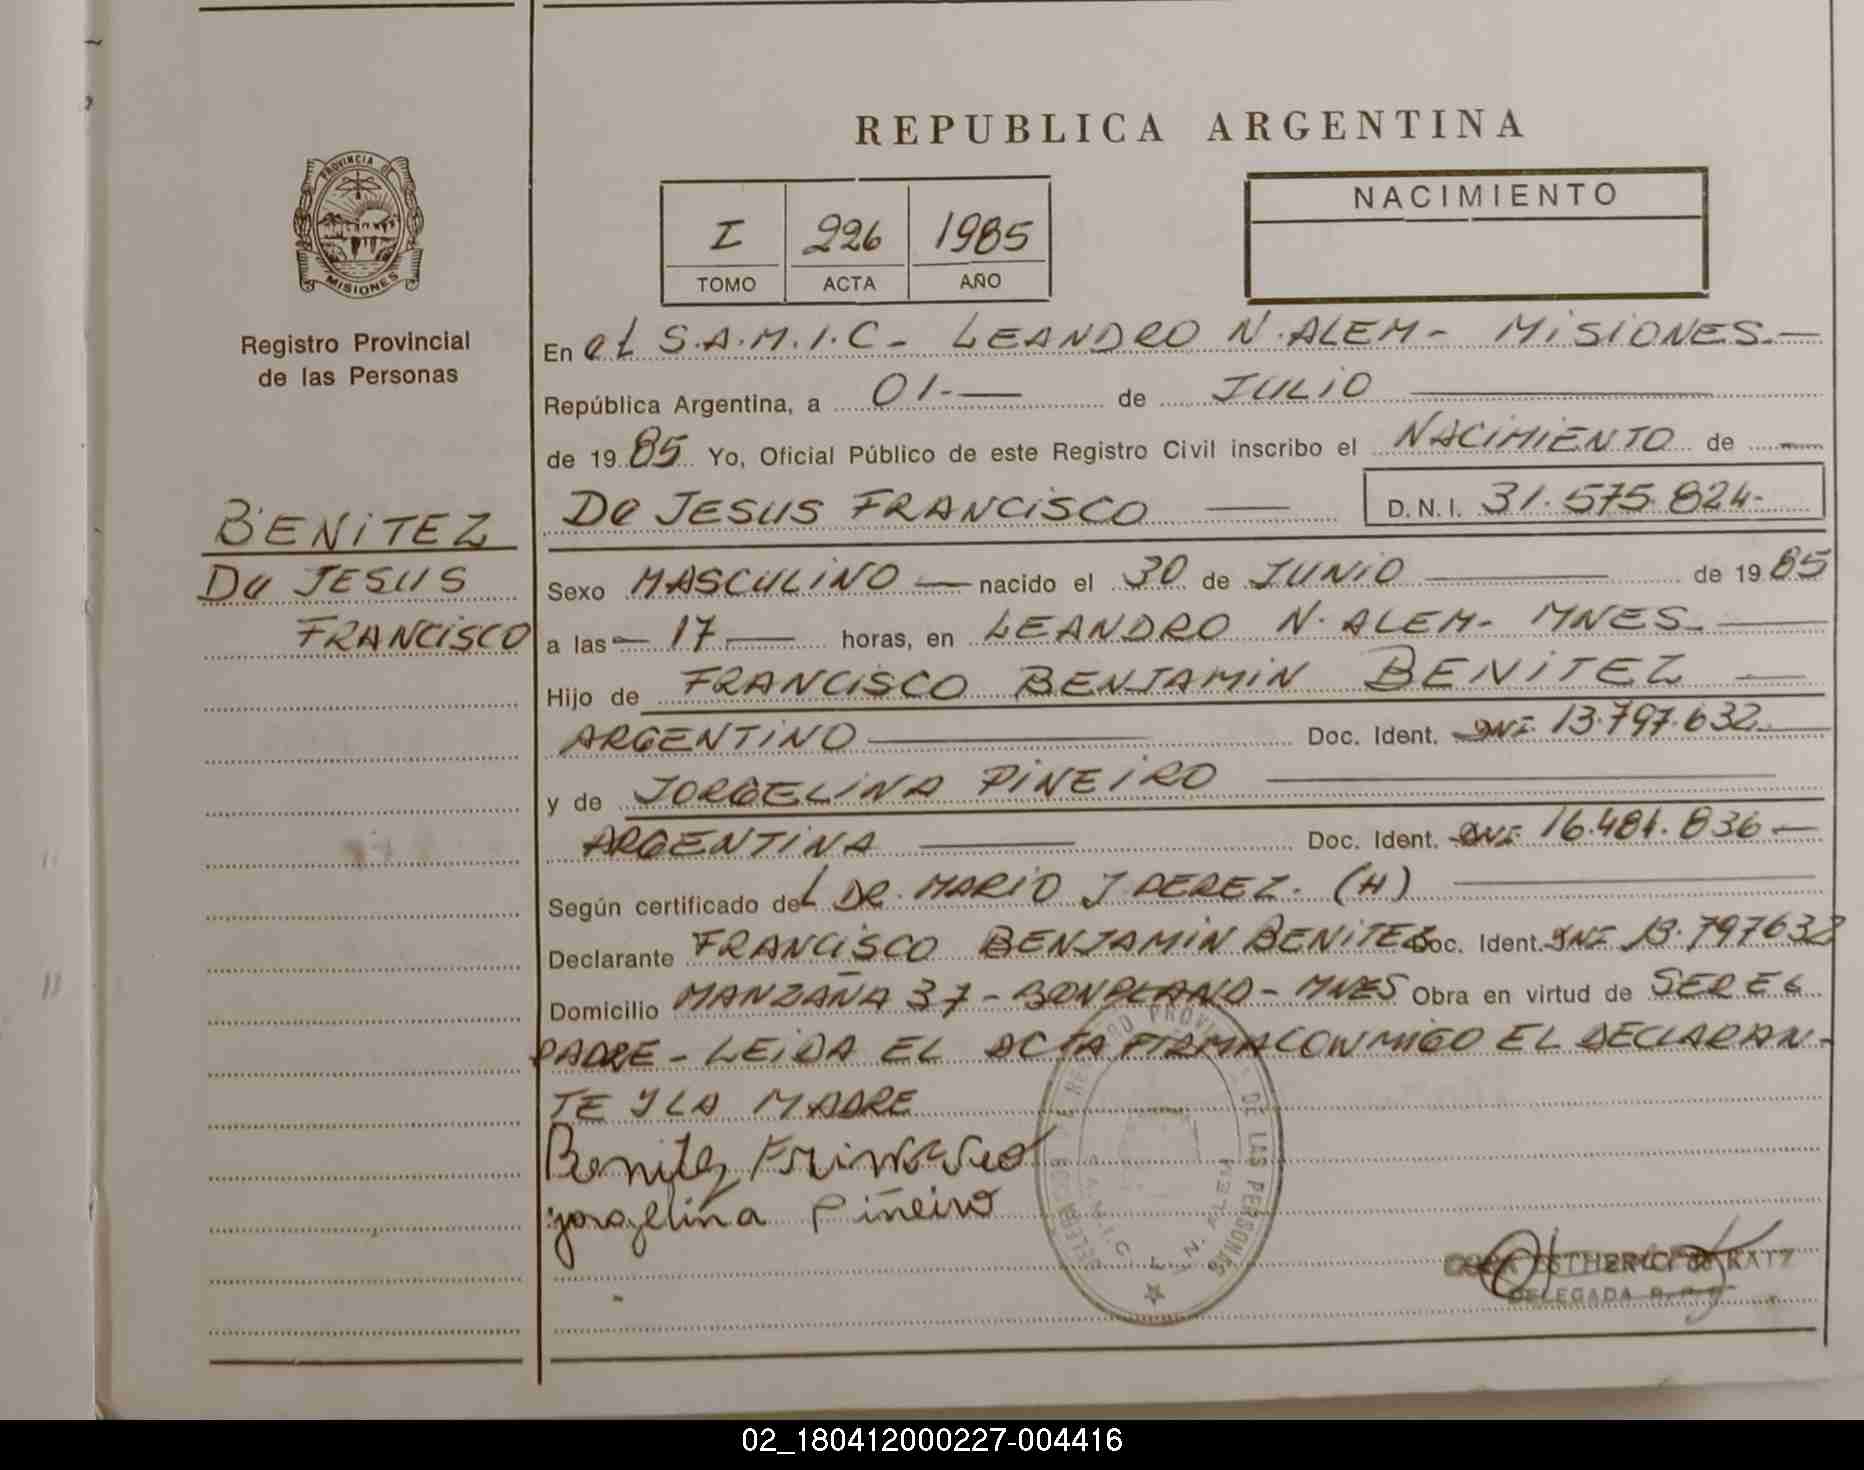 REPUBLICA ARGENTINA
PROVINCIA DE
MISIONES
Registro Provincial
de las Personas
I 226 1985
TOMO ACTA AÑO
NACIMIENTO
BENITEZ
De JESUS
FRANCISCO
En el S.A.M.I.C- LEANDRO N. ALEM- MISIONES.-
República Argentina, a 01.- de JULIO
de 1985 Yo, Oficial Público de este Registro Civil inscribo el NACIMIENTO de
De JESUS FRANCISCO D.N.I. 31.575.824-
Sexo MASCULINO nacido el 30 de JUNIO de 1985
a las 17 horas, en LEANDRO N. ALEM- MNES.
Hijo de FRANCISCO BENJAMIN BENITEZ
ARGENTINO Doc. Ident. DNI 13.797.632
y de JORGELINA PINEIRO
ARGENTINA Doc. Ident. DNI 16.481.836
Según certificado del DR. MARIO J PEREZ. (H)
Declarante FRANCISCO BENJAMIN BENITEZ Doc. Ident. DNI 13.797632
Domicilio MANZANA 37 - BONPLAND - MNES Obra en virtud de SER EL
PADRE - LEIDA EL ACTA FIRMA CONMIGO EL DECLARAN-
TE Y LA MADRE
Benitez
Jorgelina Piñeiro
REGISTRO PROVINCIAL DE LAS PERSONAS
S.A.M.I.C. L. N. ALEM
ESTHER de KATZ
DELEGADA R.P.P.
02_180412000227-004416